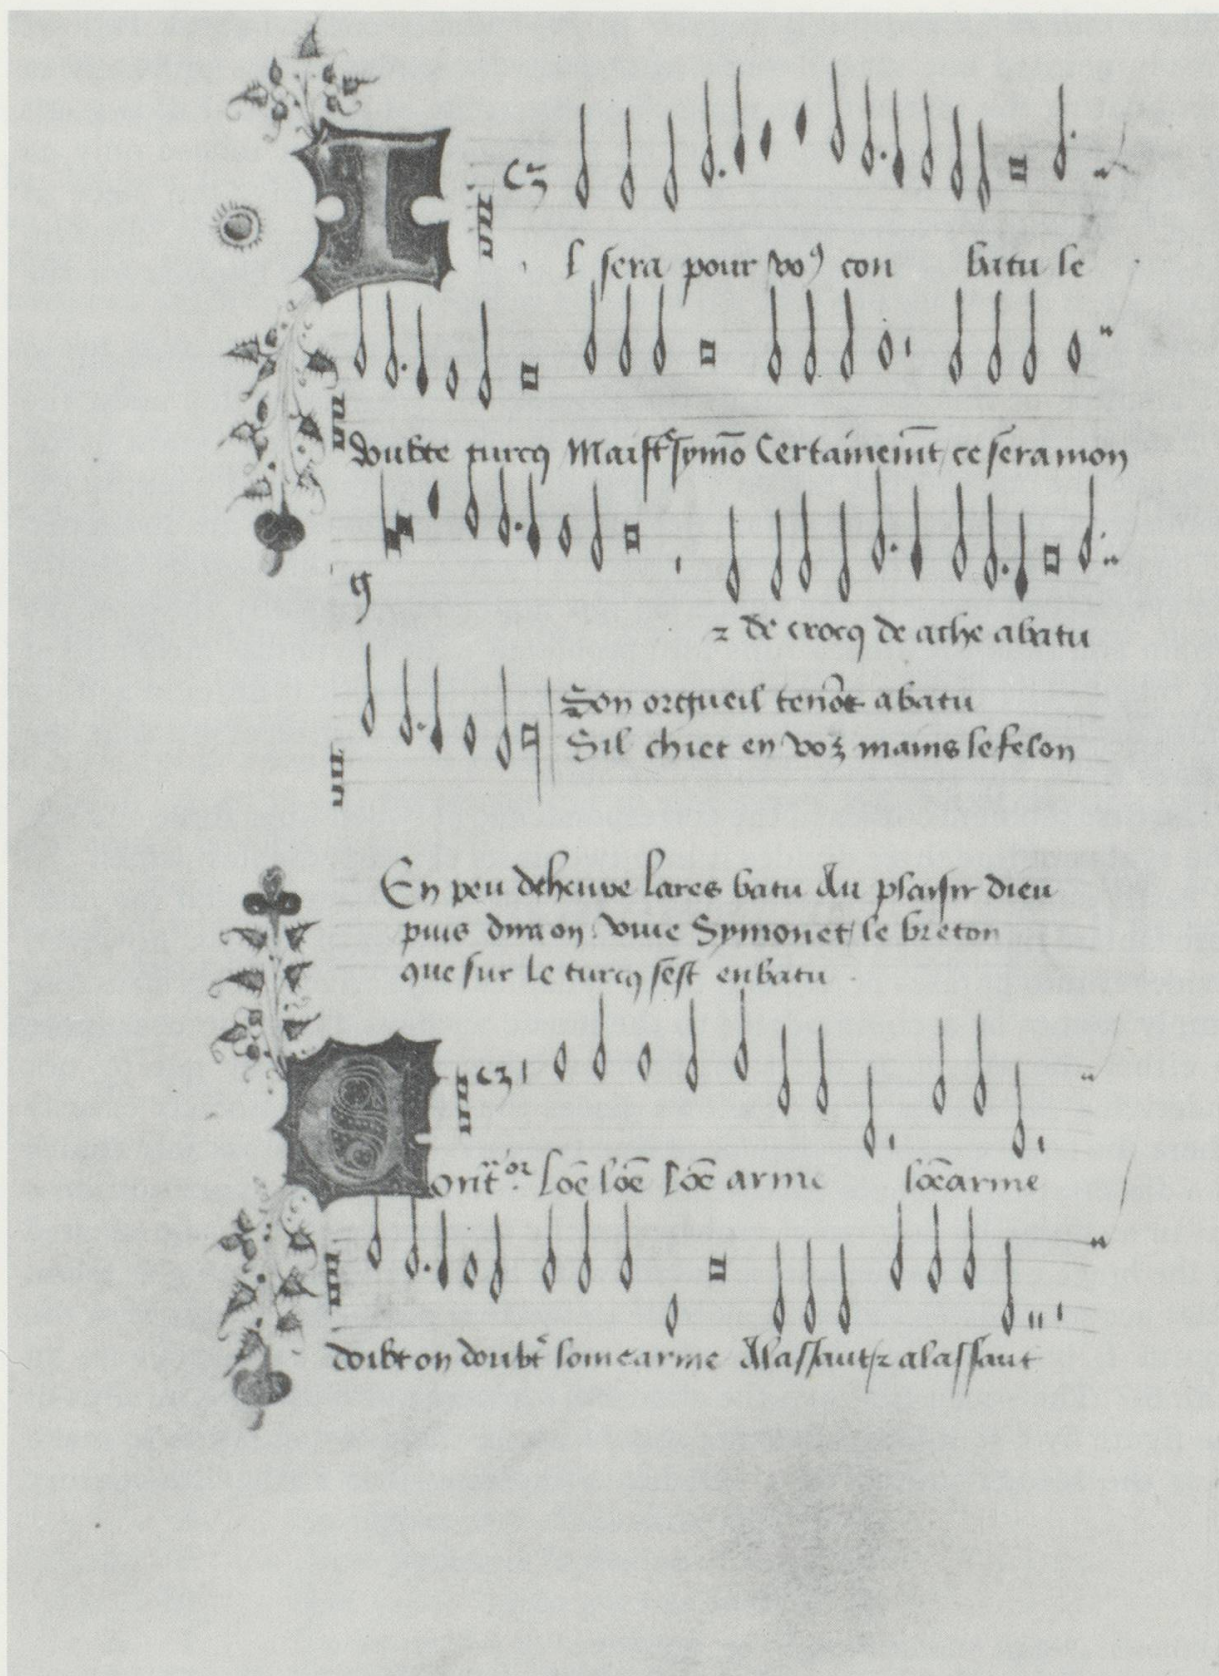 Il sera pour vo⁹ con batu le
doubte turcq Maistᵉ symō Certainemt̄ ce sera mon
⁊ de crocq de ache abatu
Son orgueil tenōt abatu
Sil chiet en voz mains le felon
En peu deheuve lares batu Au plaisir dieu
puis dira on vive Symonet / le breton
que sur le turcq sest enbatu
Contᵒʳ lōe lōe lōe arme lōe arme
doibt on doubtᵉ lome arme Alassaut / ⁊ alassaut